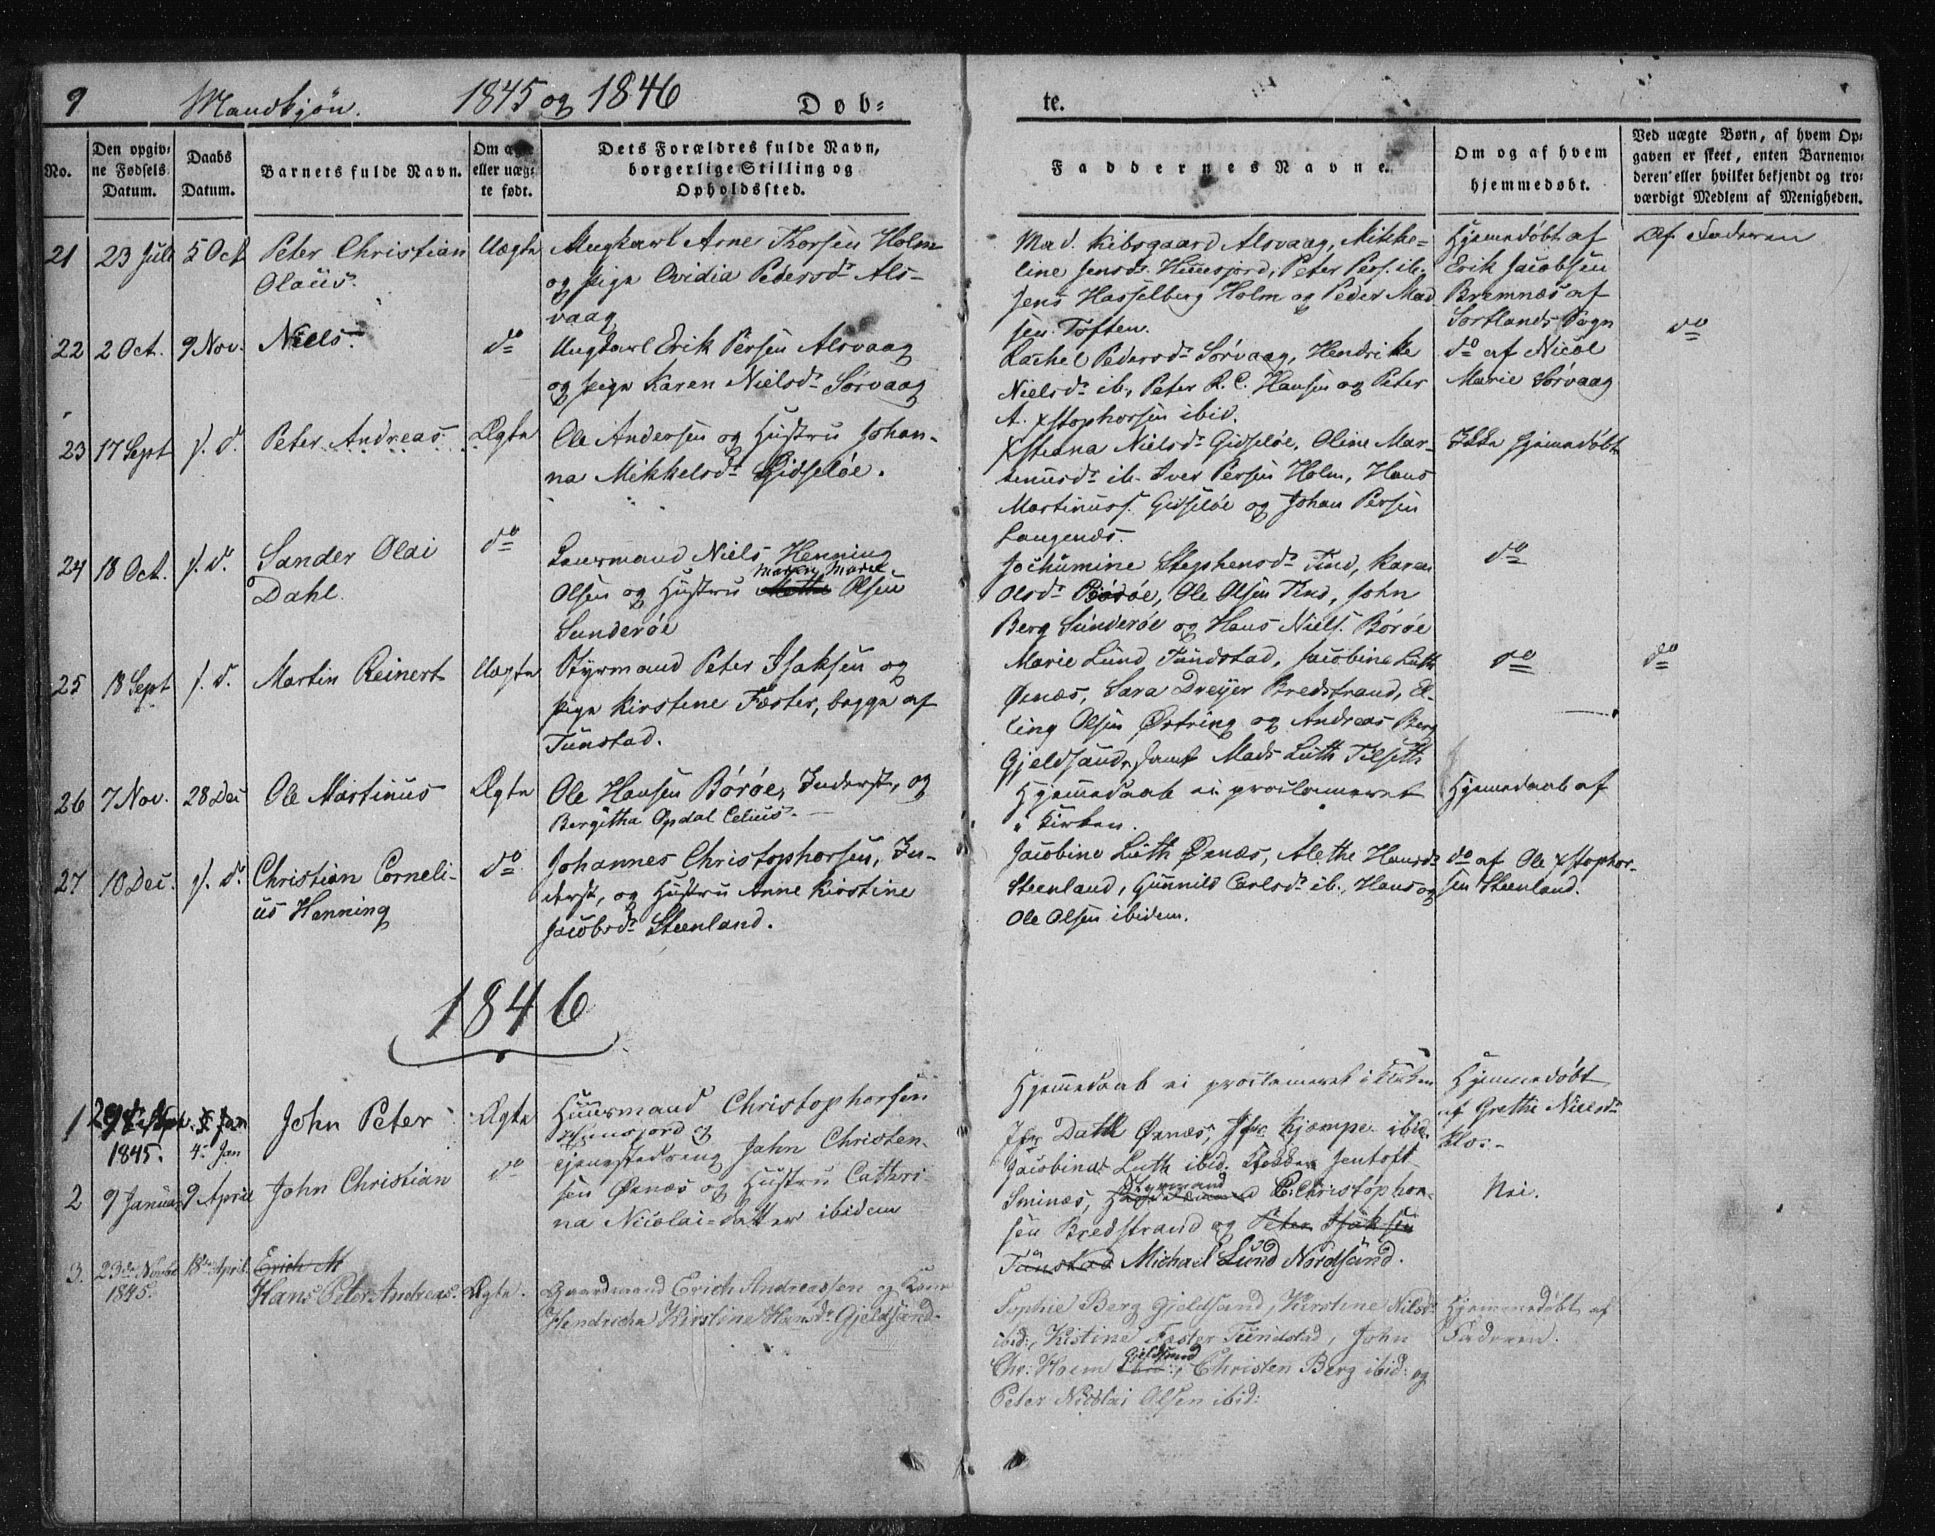 9 Mandkjøn. 1845 og 1846 Døb-
te.
No.
Den opgiv-
ne Fødsels
Datum.
Daabs
Datum.
Barnets fulde Navn.
Om ægte
eller uæg-
te født.
Dets Forældres fulde Navn,
borgerlige Stilling og
Opholdssted.
Faddernes Navne.
Om og af hvem
hjemmedøbt.
Ved uægte Børn, af hvem Op-
gaven er skeet, enten Barnemo-
deren eller hvilket bekjendt og tro-
værdigt Medlem af Menigheden.
21 23 Juli 5 Oct Peter Christian Uægte Ungkarl Arne Thorsen Holm
Olaus. og Pige Ovidia Pedersdr Als-
vaag
Mad. Kibsgaard Alsvaag, Mikke-
line Jensdr Huusjord, Peter Pers. ib.
Jens Hasselberg Holm og Peder Mad
sen Toften.
Hjemmedøbt af
Erik Jacobsen
Bremnæs af
Sortlands Sogn
Af Faderen
22 2 Oct. 9 Nov. Niels. do Ungkarl Erik Persen Alsvaag
og Pige Karen Nielsdr Sørvaag
Rachel Pedersdr Sørvaag, Hendrike
Nielsdr ib, Peter R. C. Hansen og Peter
A. Xstophersen ibid.
do af Nicol
Marie Sørvaag
do
23 17 Sept s. d. Peter Andreas Ægte Ole Andersen og Hustru Johan-
na Mikkelsdr Gidsløe.
Xstiana Nielsdr Gidsløe, Oline Mar-
tinusdr ib. Iver Persen Holm, Hans
Martinuss. Gidsløe og Johan Persen
Langenæs.
Ikke hjemmedøbt
24 18 Oct. s. d. Sander Olai do Huusmand Niels Henning
Dahl. Olsen og Hustru Maren Marie Olsen
Sunderøe
Jochumine Stephensdr Tind, Karen
Olsdr Børøe, Ole Olsen Tind, John
Berg Sunderøe og Hans Niels. Børøe
do
25 18 Sept s. d. Martin Reinert Uægte Styrmand Peter Isaksen og
Pige Kirstene Fæster, begge af
Tunstad.
Marie Lund Tundstad, Jacobine Luth
Øxnæs, Sara Dreyer Bredstrand, El-
ling Olsen Østring og Andreas Berg
Gjeldsand, samt Mads Luth Tilseth
do
do
26 7 Nov. 28 Dec Ole Martinus Ægte Ole Hansen Børøe, Inderst, og
Bergitha Opdal Celius.
Hjemmedaab ei proclameret
i Kirken.
Hjemmedaab af
27 10 Dec. s. d. Christian Corneli-
us Henning do Johannes Christophersen, In-
derst, og Hustru Anne Kirstine
Jacobsdr Steenland.
Jacobine Luth Øxnæs, Alethe Hansdr
Steenland, Gunnild Carlsdr ib., Hans og
Ole Olsen ibidem.
do af Ole Xstopher-
sen Steenland.
1846
1 29de Sept. 1845. 4. Jan John Peter Ægte Huusmand Christophersen
Huusjord og
Hjemmedaab ei proclameret i Kirken
Hjemmedøbt
af Grethe Nielsdr
Klo.
2 9 Januar 9 April John Christian do Tjenestedreng John Christen-
sen Øxnæs og Hustru Cathri-
na Nicolai-datter ibidem
Jfr Dahl Øxnæs, Jfr. Kjempe ibid.
Jacobine Luth ibid. Jentoft
Sminæs, Styrmand C. Christopher-
sen Bredstrand og Peter Isaksen
Tunstad Michael Lund Nordsand.
Nei.
3. 23de Novbr 1845. 18de April. Erich M
Hans Peter Andreas. Ægte. Gaardmand Erich Andreassen og Kone
Hendricha Kirstine Hansdr Gjeldsand.
Sophie Berg Gjeldsand, Kirstine Nilsdr
ibid:, Kistine Fæster Tundstad, John
Chr: Hoem Gjeldsand, Christen Berg ibid: og
Peter Nicolai Olsen ibid:
Hjemmedøbt af
Faderen.